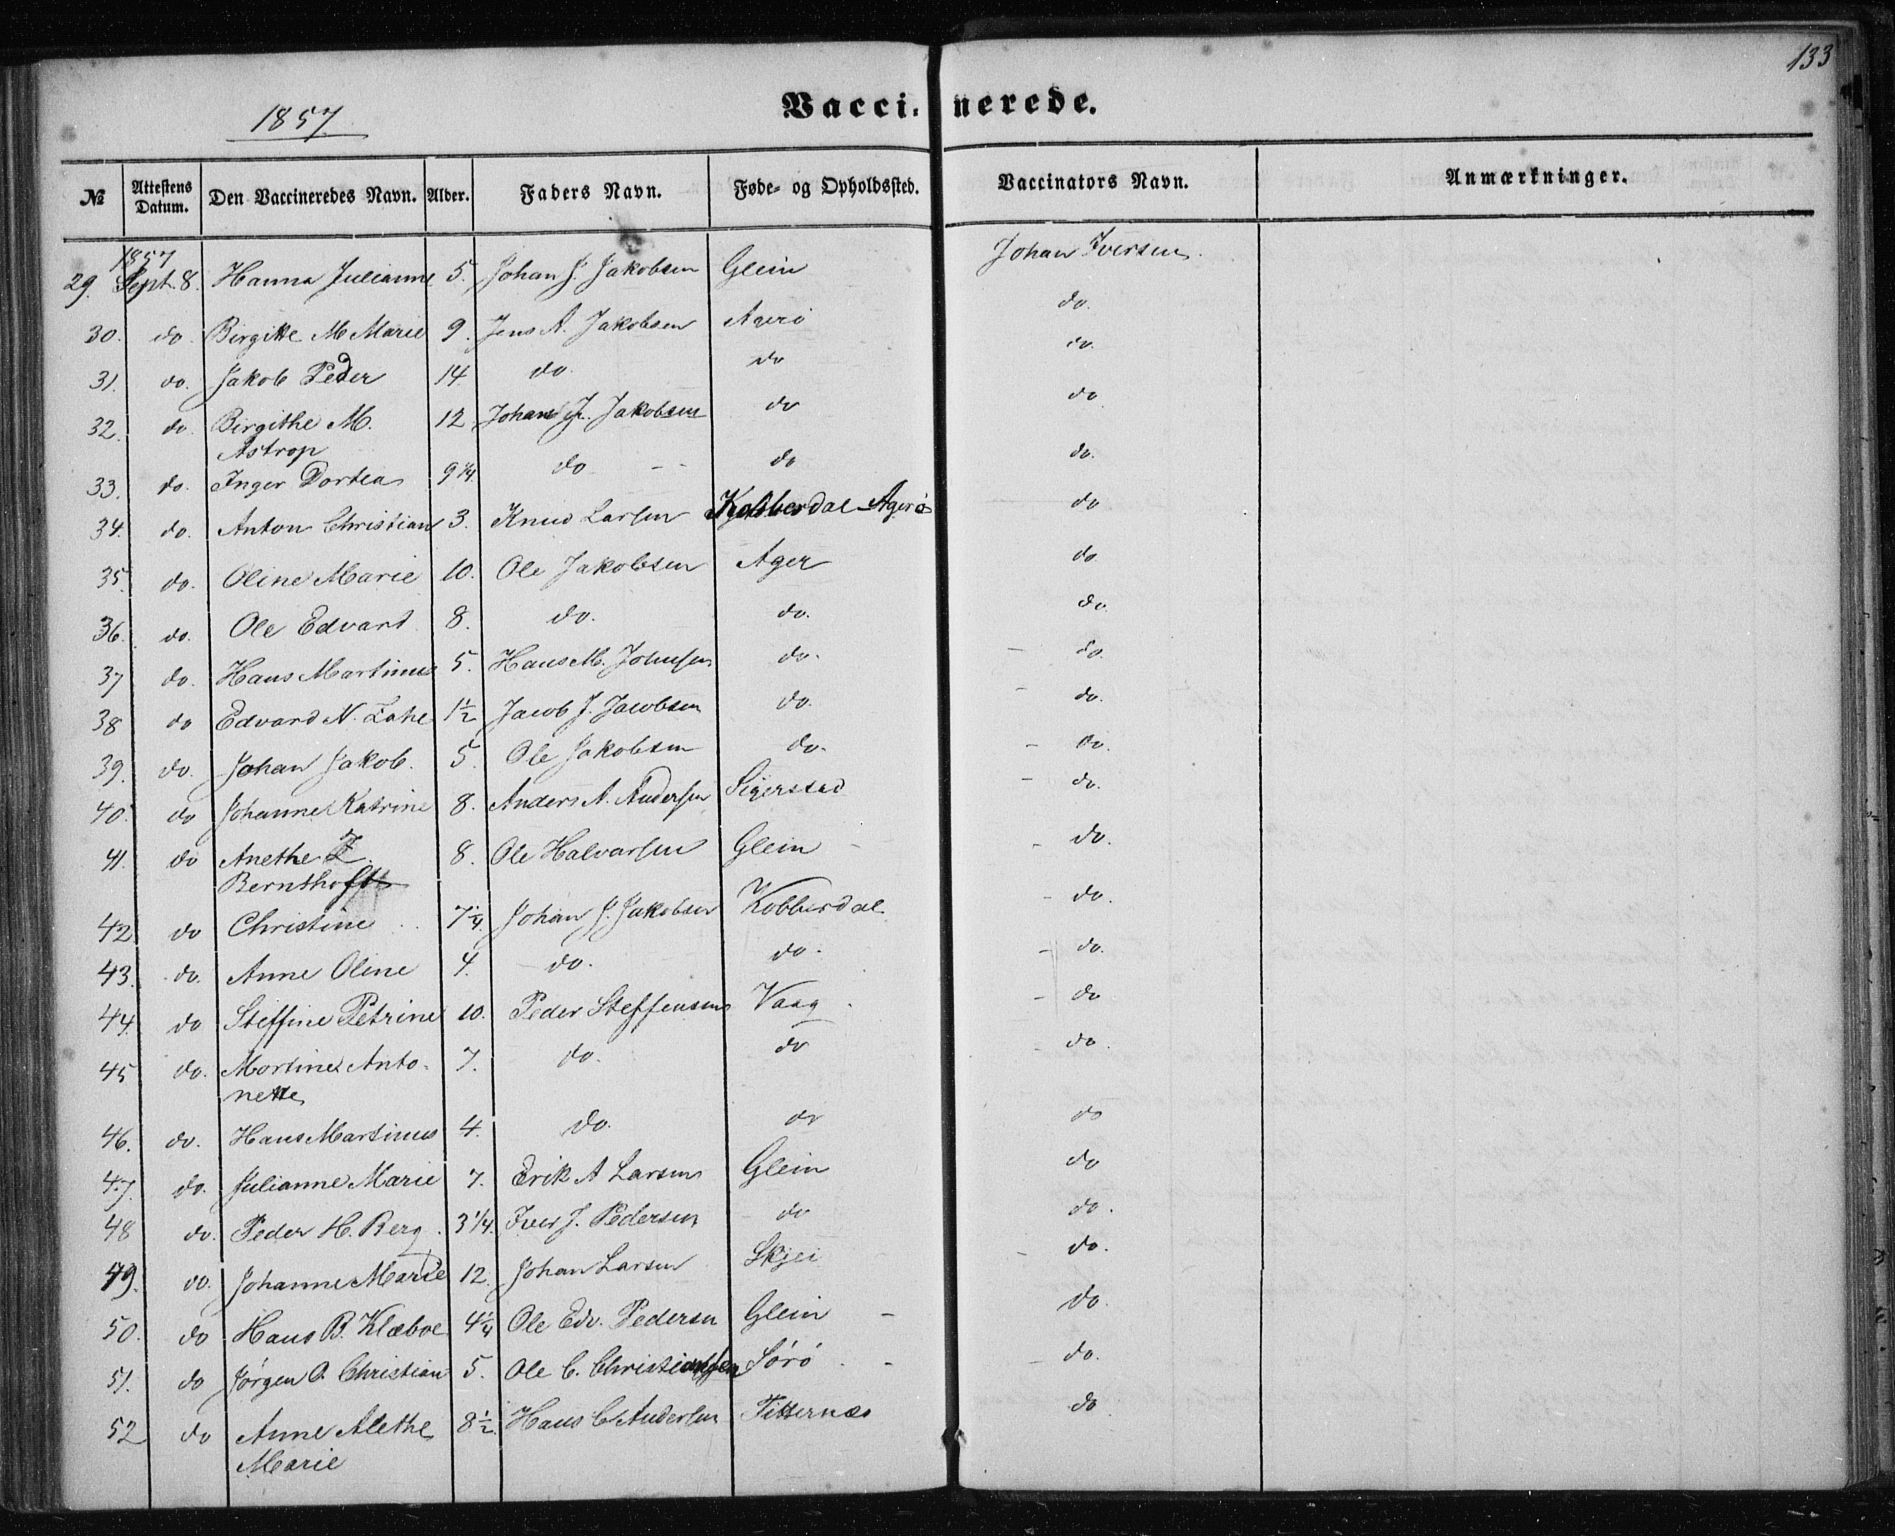 133
1857
Vaccinerede.
№ Attestens Datum. Den Vaccineredes Navn. Alder. Faders Navn. Føde- og Opholdssted. Vaccinators Navn. Anmærkninger.
1857
29. Sept. 8. Hanna Julianne 5. Johan J. Jakobsen Glein Johan Iversen.
30. do. Birgitte M Marie 9. Jens A. Jakobsen Agerö do.
31. do. Jakob Peder 14 do. do do.
32. do. Birgithe M. 12 Johan J. Jakobsen do do
Astrop
33. do. Inger Dortea 9 1/4 do do do.
34. do. Anton Christian 3. Knud Larsen Kobberdal Agerö do
35. do. Oline Marie 10. Ole Jakobsen Ager do
36. do. Ole Edvart 8. do. do. do.
37 do. Hans Martinus 5. Hans M. Johnsen do. do.
38 do Edvard N. Zahl 1½ Jacob J. Jacobsen do. do.
39. do. Johan Jakob. 5. Ole Jakobsen do. do.
40. do Johanne Katrine 8. Anders A. Andersen Sigerstad do.
41. do Anethe J. 8. Ole Halvarsen Glein do.
Bernthoft
42 do Christine 7¼ Johan J. Jakobsen Kobberdal do.
43. do. Anne Oline 4. do. do. do.
44. do Steffine Petrine 10. Peder Steffensen Vaag do
45 do. Martine Anto- 7. do. do do.
nette
46. do. Hans Martinus 4. do. do do
47. do. Julianne Marie 7. Erik A Larsen Glein do
48 do. Peder H. Berg. 3 1/4. Iver J. Pedersen do do.
49. do. Johanne Marie 12. Johan Larsen Skjei do.
50. do Hans B. Klæboe 4¼ Ole Edv. Pedersen Glein do.
51. do Jørgen O. Christian 5. Ole C. Christiansen Sörö do.
52 do Anne Alethe 8½. Hans C Andersen Titternæs do
Marie